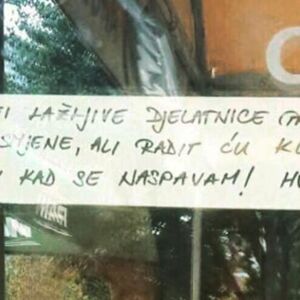 TI LAŽLJIVE DJELATNICE
SMJENE, ALI RADIT ĆU
KAD SE NASPAVAM!